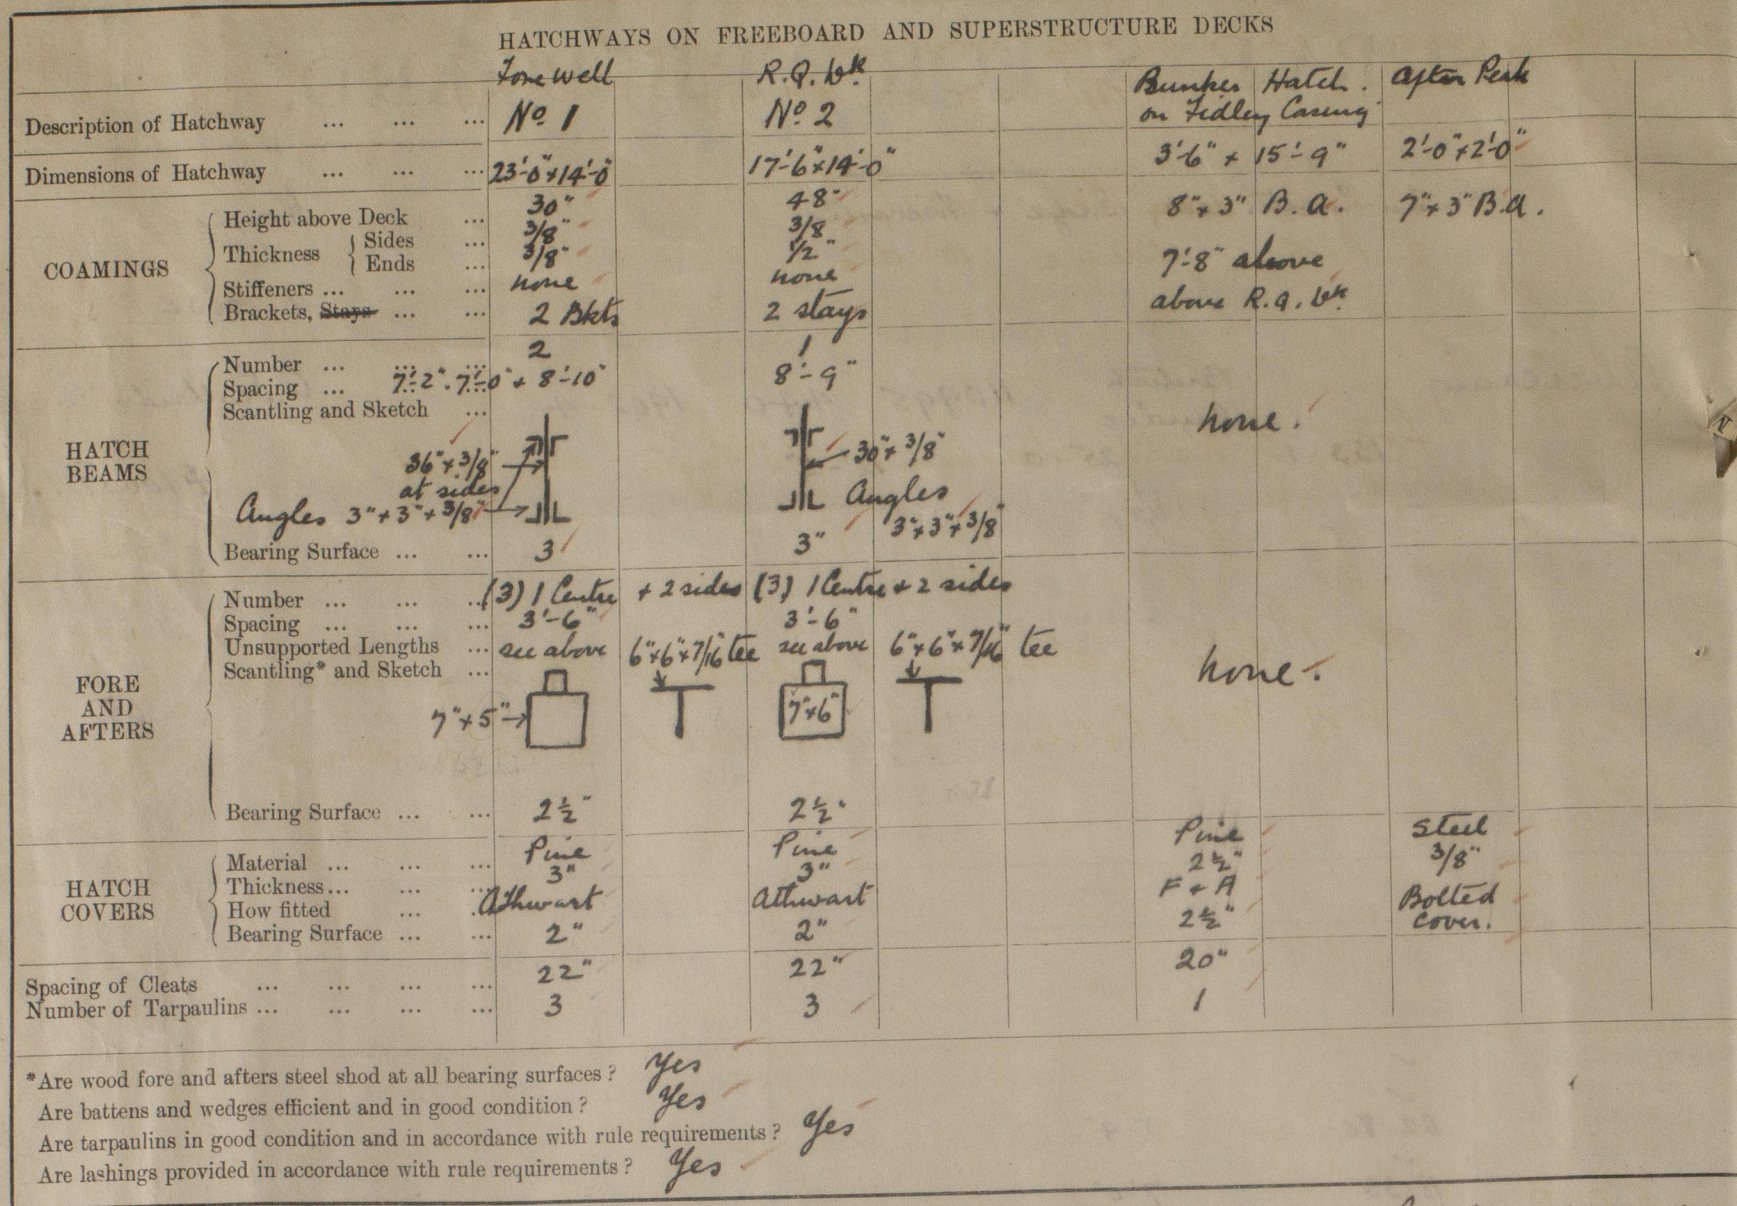 HATCHWAYS ON FREEBOARD AND SUPERSTRUCTURE DECKS
Fore Well R.Q. Dk Bunker Hatch. After Peak
Description of Hatchway ... ... ... No 1 No 2 on Fidley Casing
Dimensions of Hatchway ... ... ... 23'-0"x14'-0" 17'-6"x14'-0" 3'-6" x 15'-9" 2'-0"x2'-0"
COAMINGS
Height above Deck ... 30" 48" 8"x3" B.A. 7"x3" B.A.
Thickness { Sides ... 3/8" 3/8
Ends ... 3/8" 1/2" 7'-8" above
Stiffeners ... ... ... none none
Brackets, Stays ... ... 2 Bkts 2 stays above R.Q. Dk
HATCH BEAMS
Number ... ... ... 2 1
Spacing ... 7'-2". 7'-0" + 8'-10" 8'-9"
Scantling and Sketch ... none.
36"x3/8" 30"x3/8"
at sides
Angles 3"x3"x3/8" Angles
3"x3"x3/8"
Bearing Surface ... ... 3 3"
FORE AND AFTERS
Number ... ... ... (3) 1 Centre + 2 sides (3) 1 Centre + 2 sides
Spacing ... ... ... 3'-6" 3'-6"
Unsupported Lengths ... see above 6"x6"x7/16" tee see above 6"x6"x7/16" tee
Scantling* and Sketch ... none.
7"x5" 7"x6"
Bearing Surface ... ... 2½" 2½"
HATCH COVERS
Material ... ... ... Pine Pine Pine Steel
Thickness ... ... ... 3" 3" 2½" 3/8"
How fitted ... ... Athwart Athwart F & A Bolted
Bearing Surface ... ... 2" 2" 2½" cover.
Spacing of Cleats ... ... ... ... 22" 22" 20"
Number of Tarpaulins ... ... ... ... 3 3 1
*Are wood fore and afters steel shod at all bearing surfaces? Yes
Are battens and wedges efficient and in good condition? Yes
Are tarpaulins in good condition and in accordance with rule requirements? Yes
Are lashings provided in accordance with rule requirements? Yes